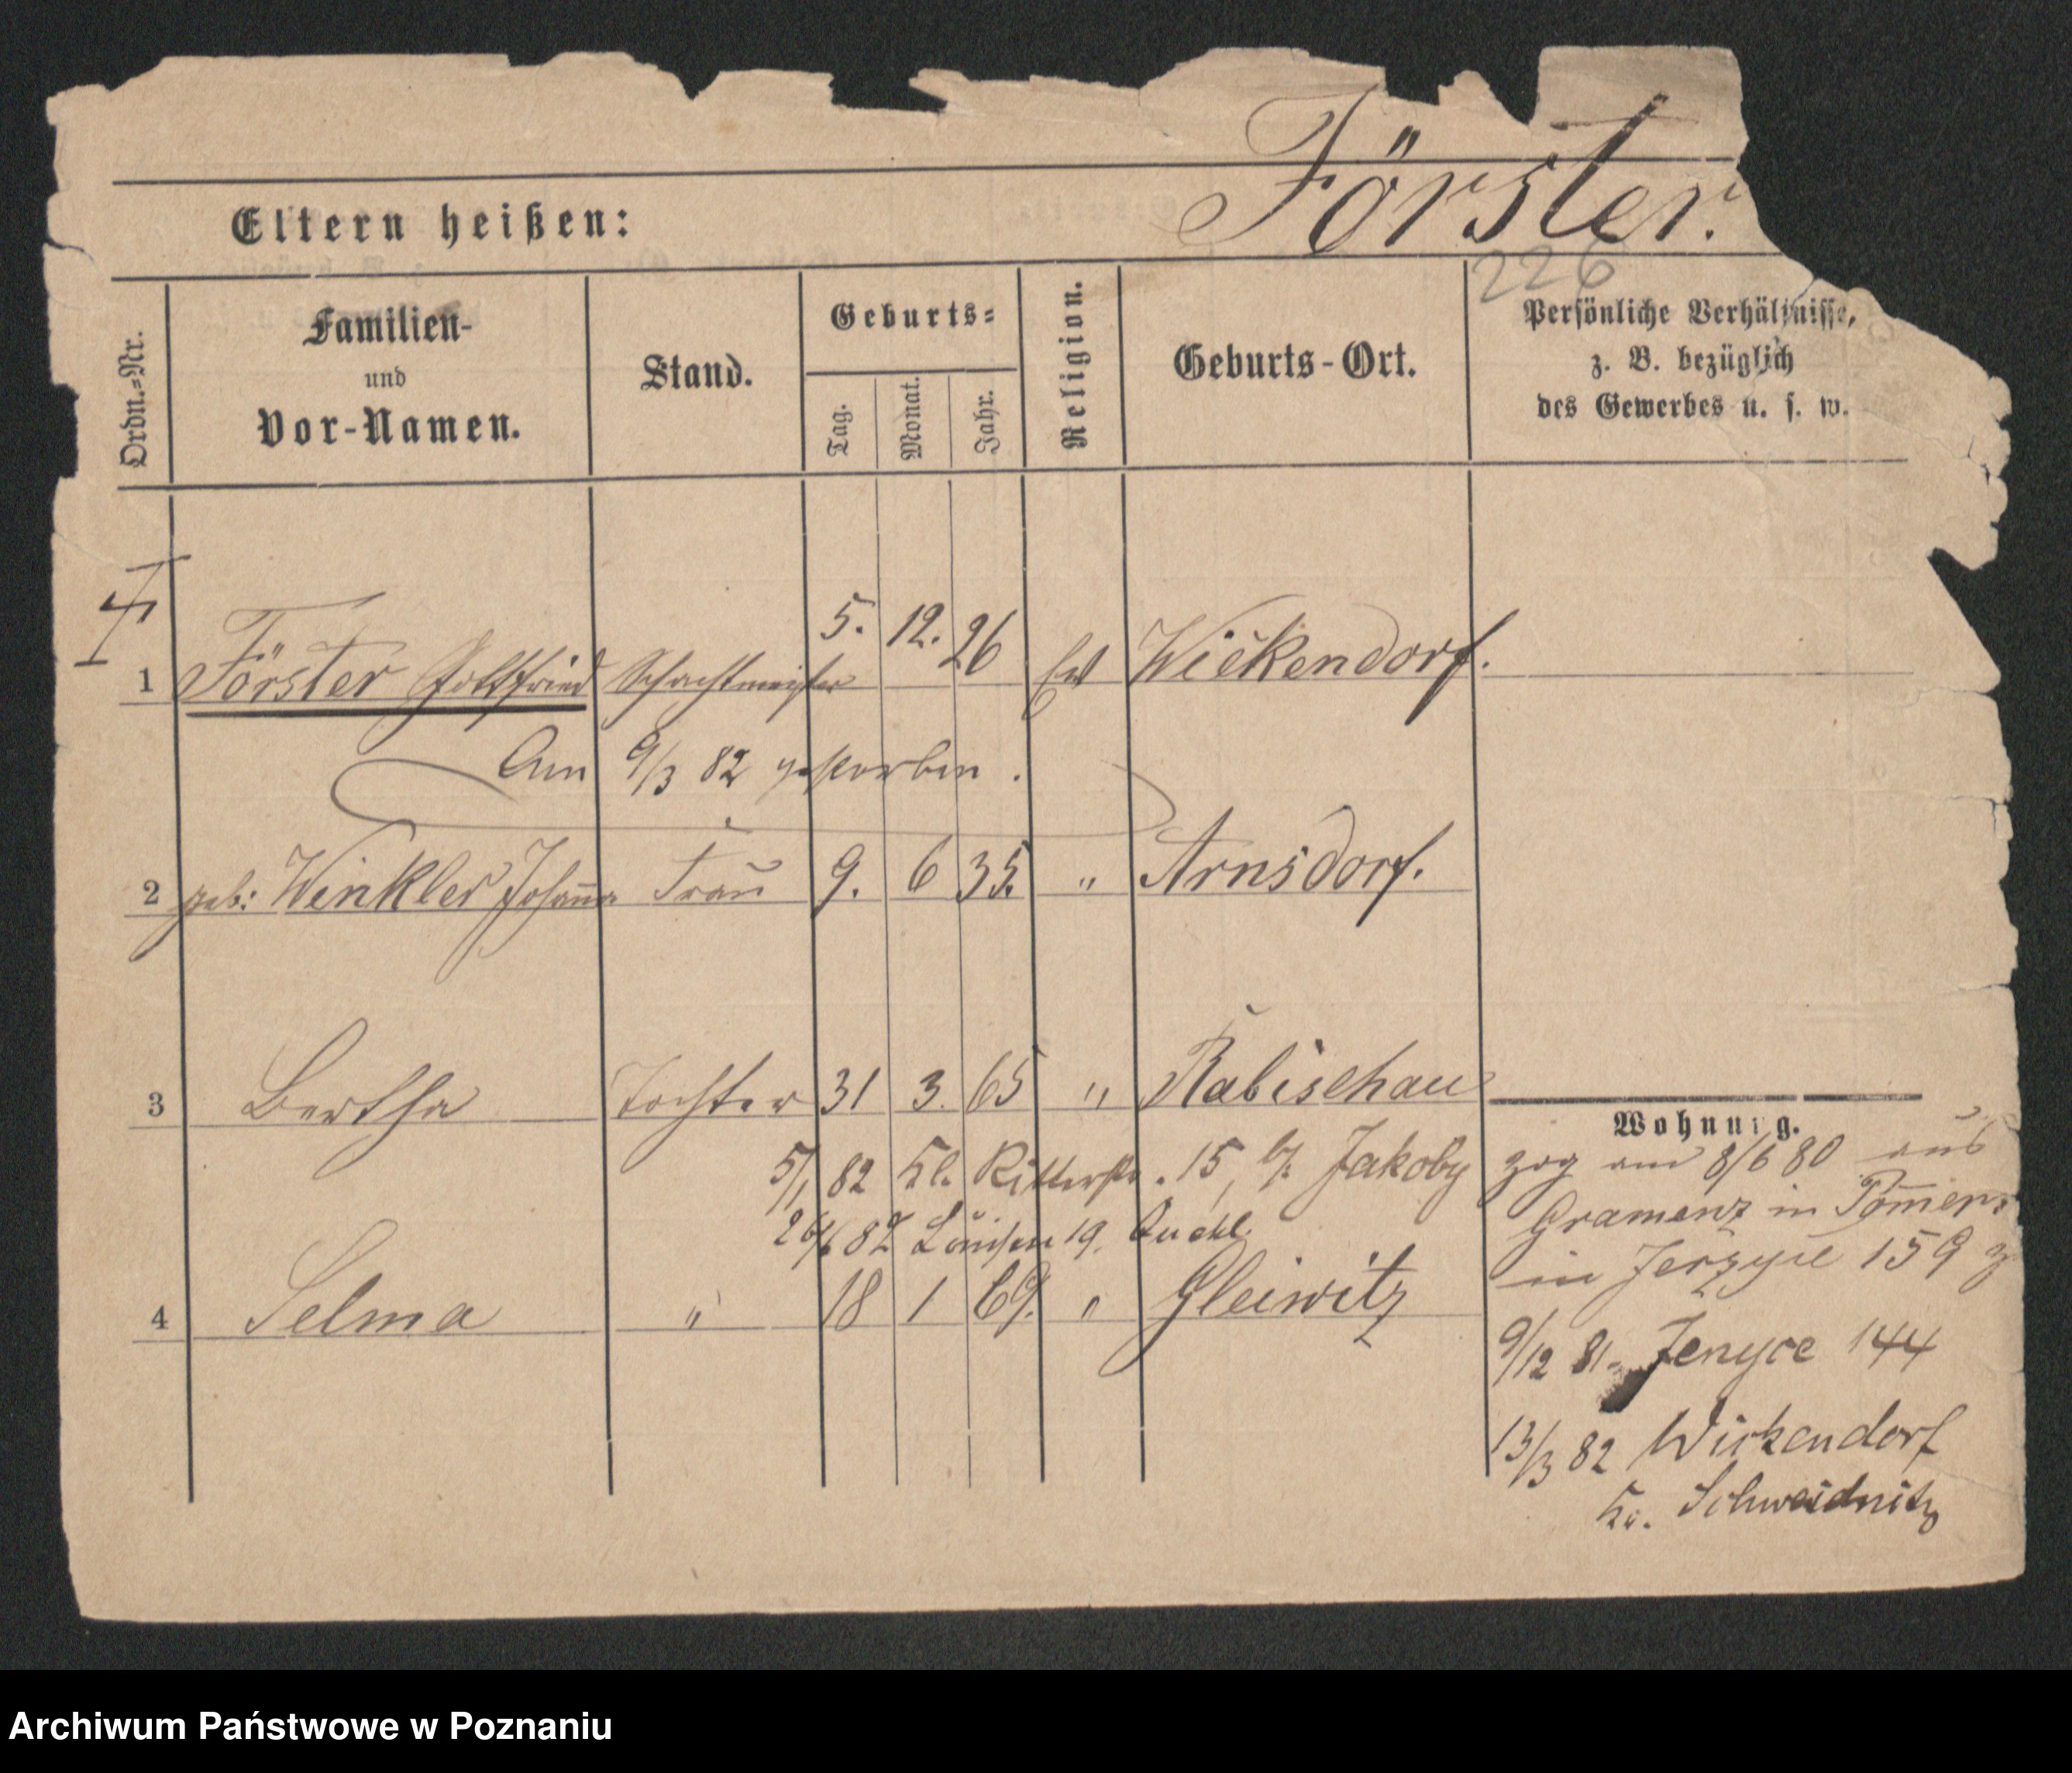 Förster.
Eltern heißen:
226
Ordn.-Nr.
Familien-
und
Vor-Namen.
Stand.
Geburts-
Tag.
Monat.
Jahr.
Religion.
Geburts-Ort.
Persönliche Verhältnisse,
z. B. bezüglich
des Gewerbes u. s. w.
1 Förster Gottfried Schachtmeister 5. 12. 26 Ev Wickendorf.
Am 9/3 82 gestorben.
2 geb: Winkler Johanna Frau 9. 6 35. " Arnsdorf.
3 Bertha Tochter 31 3. 65 " Rabischau
5/1 82 Kl. Ritterstr. 15, b/. Jakoby
26/6 82 19.
4 Selma " 18 1 69. " Gleiwitz
Wohnung.
zog am 8/6 80 aus
Gramenz in Pomern.
in 159
9/12 81. 144
13/3 82 Wickendorf
Kr. Schweidnitz
Archiwum Państwowe w Poznaniu